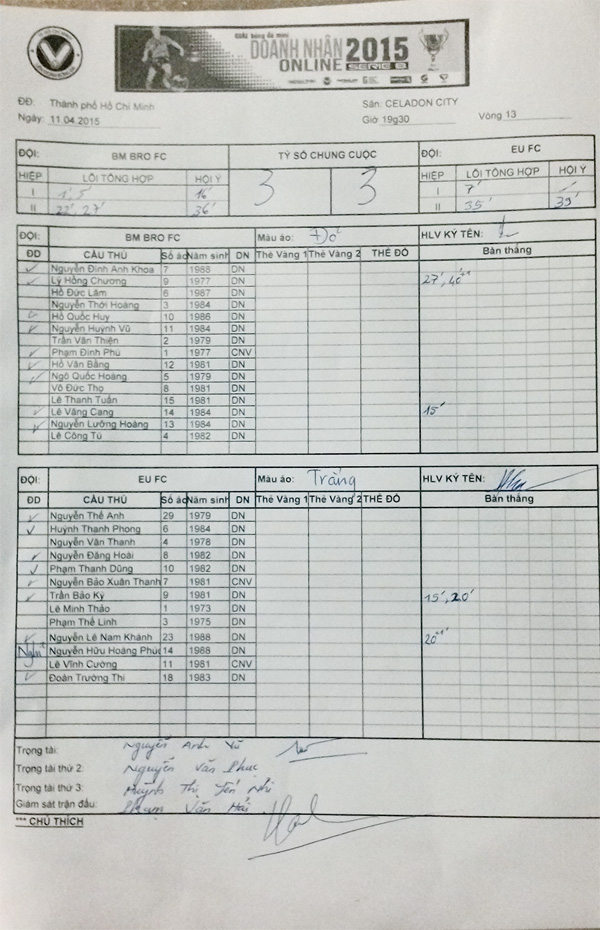 GIẢI bóng đá mini
DOANH NHÂN 2015
ONLINE SERIE B
ĐĐ: Thành phố Hồ Chí Minh Sân: CELADON CITY
Ngày: 11.04.2015 Giờ 19g30 Vòng 13
ĐỘI: BM BRO FC TỶ SỐ CHUNG CUỘC ĐỘI: EU FC
HIỆP LỖI TỔNG HỢP HỘI Ý 3 3 HIỆP LỖI TỔNG HỢP HỘI Ý
I 16' I 7'
II 22' 27' 36' II 35' 39'
ĐỘI: BM BRO FC Màu áo: Đỏ HLV KÝ TÊN:
ĐD CẦU THỦ Số áo Năm sinh DN Thẻ Vàng 1 Thẻ Vàng 2 THẺ ĐỎ Bàn thắng
Nguyễn Đình Anh Khoa 7 1988 DN
Lý Hồng Chương 9 1977 DN 27', 40'
Hồ Đức Lâm 6 1987 DN
Nguyễn Thới Hoàng 3 1984 DN
Hồ Quốc Huy 10 1986 DN
Nguyễn Huỳnh Vũ 11 1984 DN
Trần Văn Thiện 2 1979 DN
Phạm Đình Phú 1 1977 CNV
Hồ Văn Bằng 12 1981 DN
Ngô Quốc Hoàng 5 1979 DN
Võ Đức Thọ 8 1981 DN
Lê Thanh Tuấn 15 1981 DN
Lê Văng Cang 14 1984 DN 15'
Nguyễn Lưỡng Hoàng 13 1984 DN
Lê Công Tú 4 1982 DN
ĐỘI: EU FC Màu áo: Trắng HLV KÝ TÊN:
ĐD CẦU THỦ Số áo Năm sinh DN Thẻ Vàng 1 Thẻ Vàng 2 THẺ ĐỎ Bàn thắng
Nguyễn Thế Anh 29 1979 DN
Huỳnh Thanh Phong 6 1984 DN
Nguyễn Văn Thanh 4 1978 DN
Nguyễn Đăng Hoài 8 1982 DN
Phạm Thanh Dũng 10 1982 DN
Nguyễn Bảo Xuân Thanh 7 1981 CNV
Trần Bảo Kỳ 9 1981 DN 15', 20'
Lê Minh Thảo 1 1973 DN
Phạm Thế Linh 3 1975 DN
Nguyễn Lê Nam Khánh 23 1988 DN 20'
Nghỉ Nguyễn Hữu Hoàng Phúc 14 1988 DN
Lê Vĩnh Cường 11 1981 CNV
Đoàn Trường Thi 18 1983 DN
Trọng tài: Nguyễn Anh Vũ
Trọng tài thứ 2: Nguyễn Văn Phúc
Trọng tài thứ 3: Huỳnh Thị Yến Nhi
Giám sát trận đấu: Phạm Văn Hải
*** CHÚ THÍCH